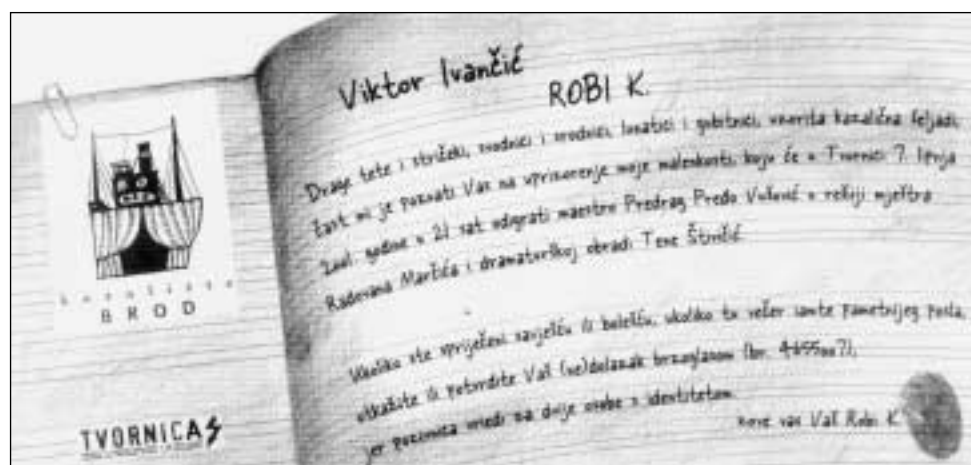 Viktor Ivančić
ROBI K.
Drage tete i stričeki, srodnici i srodnici, lunatici i gubitnici, umorita kazalična čeljadi,
čast mi je pozvati Vas na uprizorenje moje malenkosti, koju će u Tvornici 7. lipnja
2001. godine u 21 sat odigrati maestro Predrag Predo Vušović u režiji meštra
Radovana Marčića i dramaturškoj obradi Tene Štivičić.
Ukoliko ste spriječeni savješću ili bolešću, ukoliko tu večer imate pametnijeg posla,
otkažite ili potvrdite Vaš (ne)dolazak brzoglasom (br.
jer pozivnica vrijedi za dvije osobe s identitetom.
Vaš Robi K.
kazalište
BROD
TVORNICA